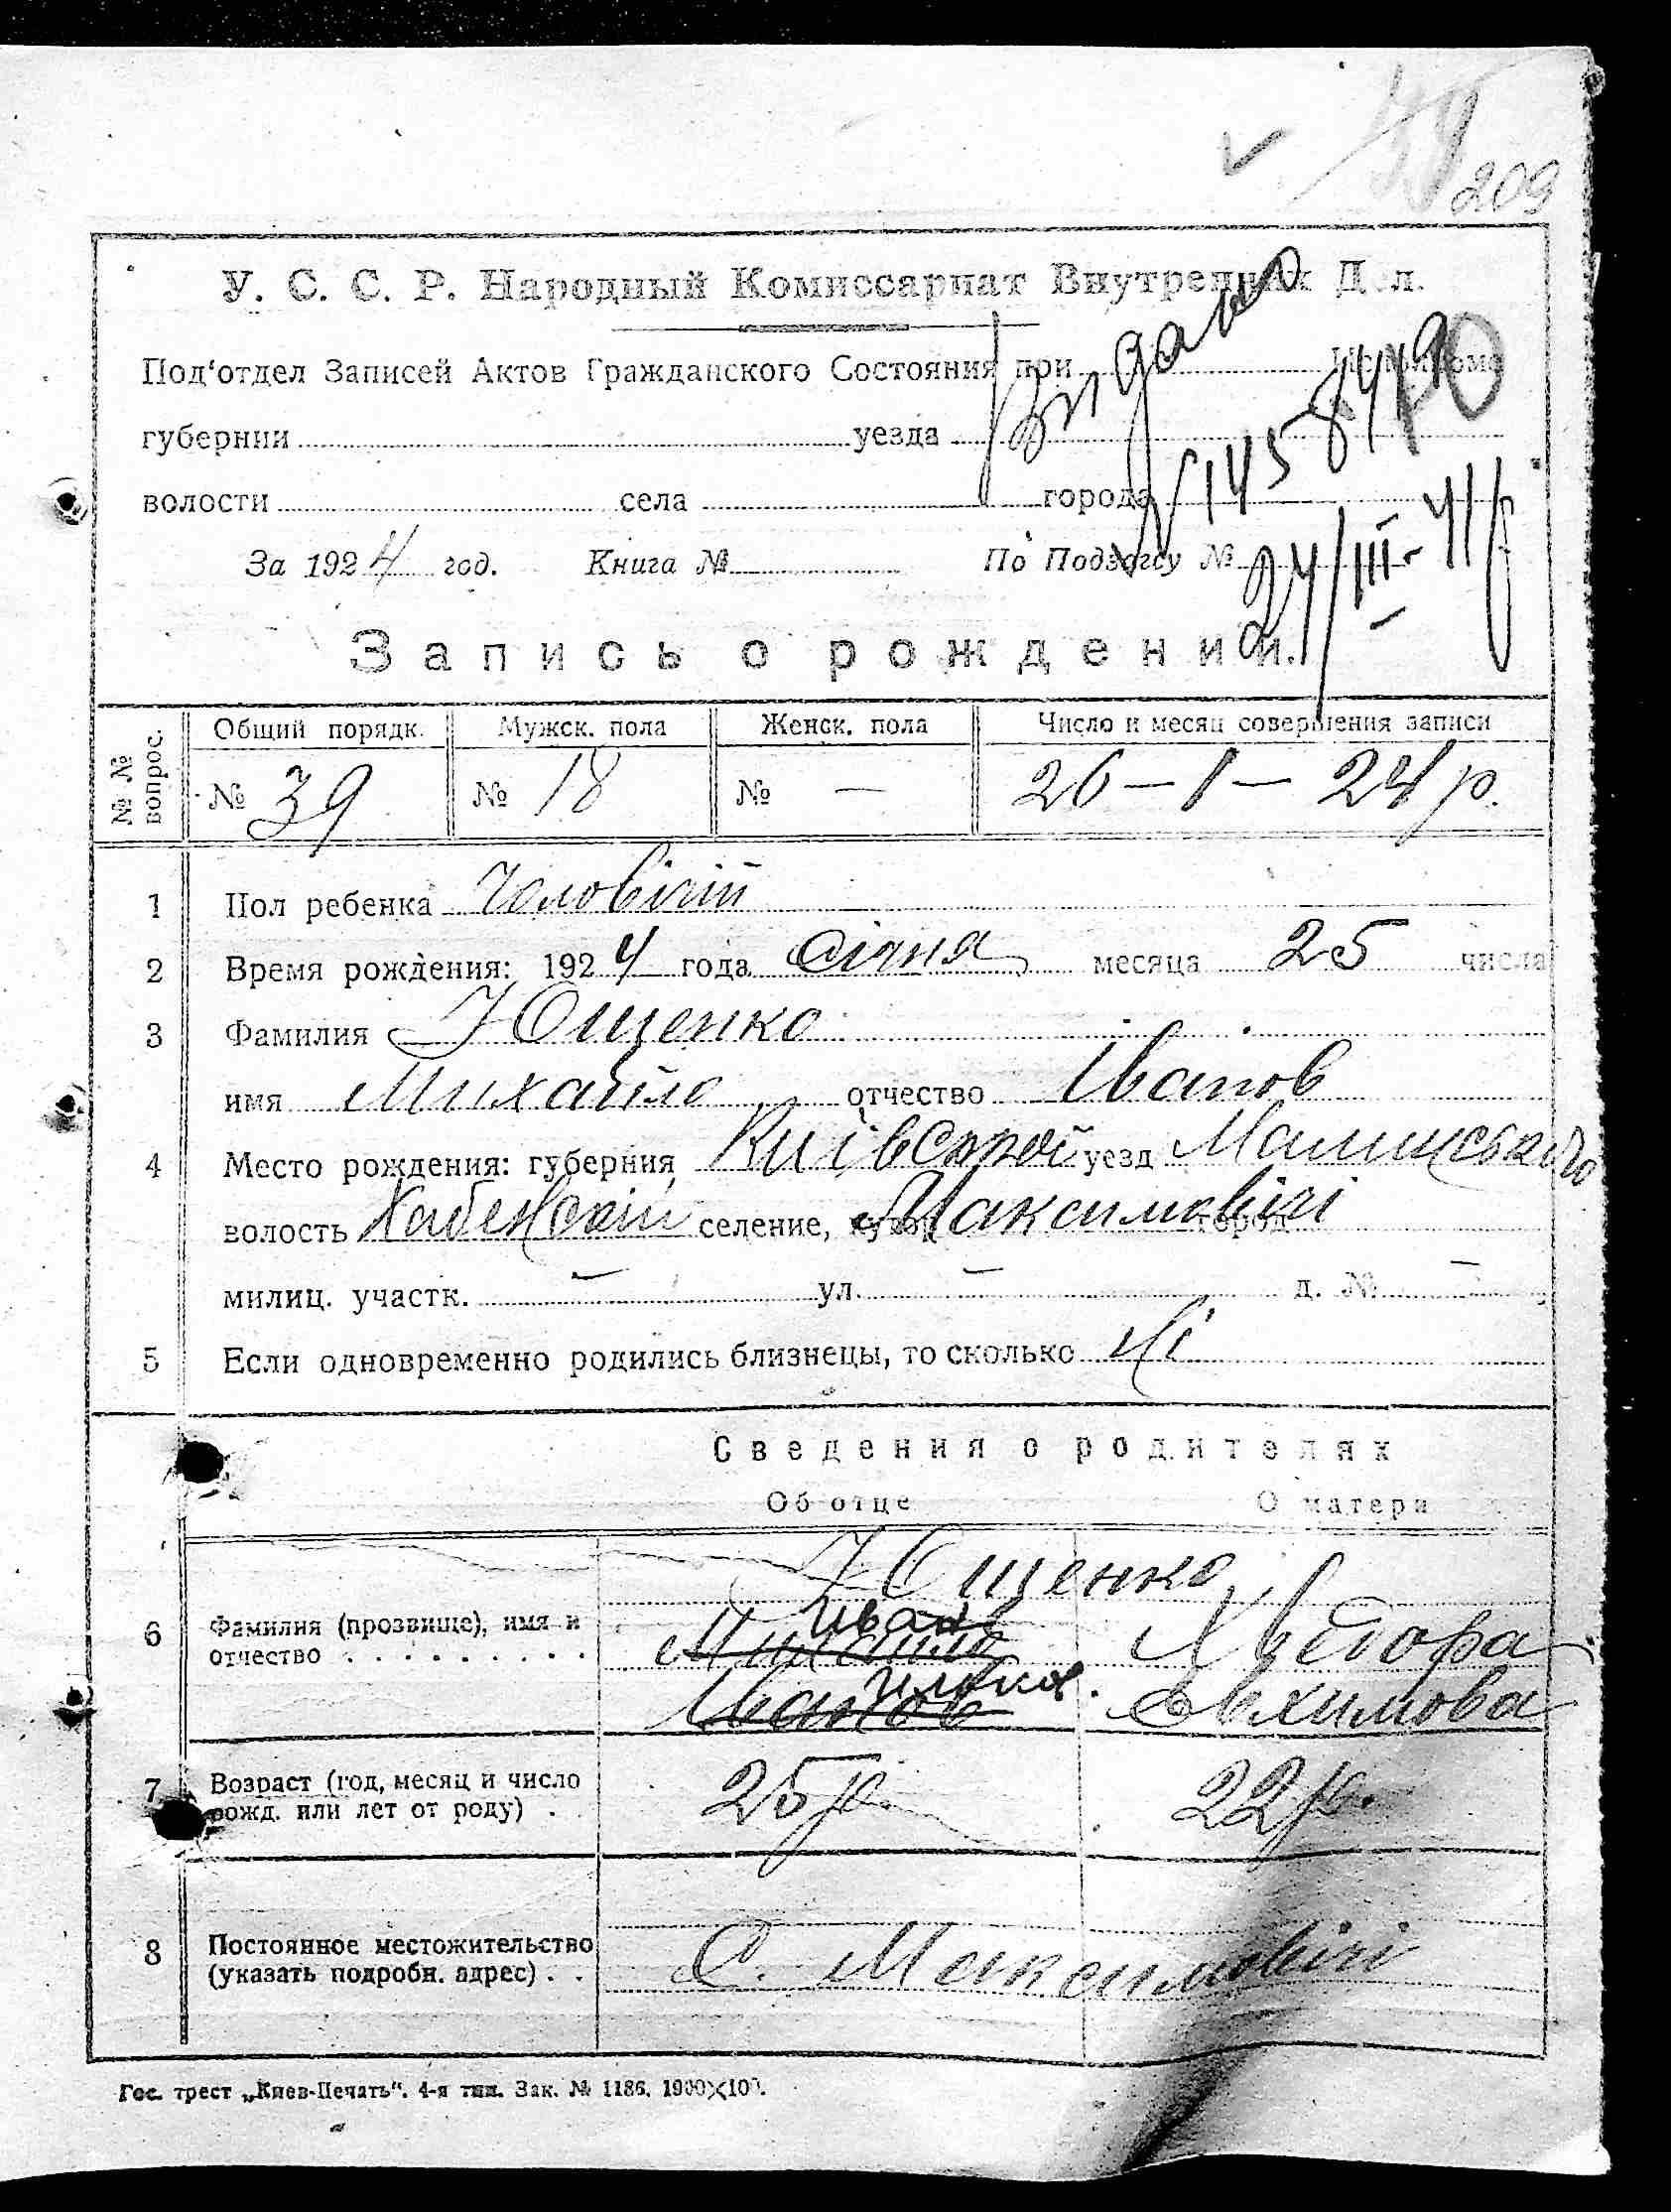 209
У. С. С. Р. Народный Комиссариат Внутренних Дел.
Под'отдел Записей Актов Гражданского Состояния при Исполкоме
Видано
губернии уезда
N 145
волости села города
За 1924 год. Книга № По Подзагсу №
24/III-41р
Запись о рождении.
№ № вопрос. Общий порядк. Мужск. пола Женск. пола Число и месяц совершения записи
№ 39 № 18 № — 26-I-24 р.
1 Пол ребенка Чоловічий
2 Время рождения: 1924 года січня месяца 25 числа
3 Фамилия Ющенко
имя Михайло отчество Іванов
4 Место рождения: губерния Київської уезд Малинського
волость Хабенский селение, хутор, город Максимовичі
милиц. участк. — ул. — д. № —
5 Если одновременно родились близнецы, то сколько Ні
Сведения о родителях
Об отце О матери
Ющенко
6 Фамилия (прозвище), имя и отчество
Иван
Михайло Хведора
Іванов Евхимова
7 Возраст (год, месяц и число рожд. или лет от роду) . 25 р. 22 р.
8 Постоянное местожительство (указать подробн. адрес) . . С. Максимовічі
Гос. трест „Киев-Печать". 4-я тип. Зак. № 1186. 1900×100.